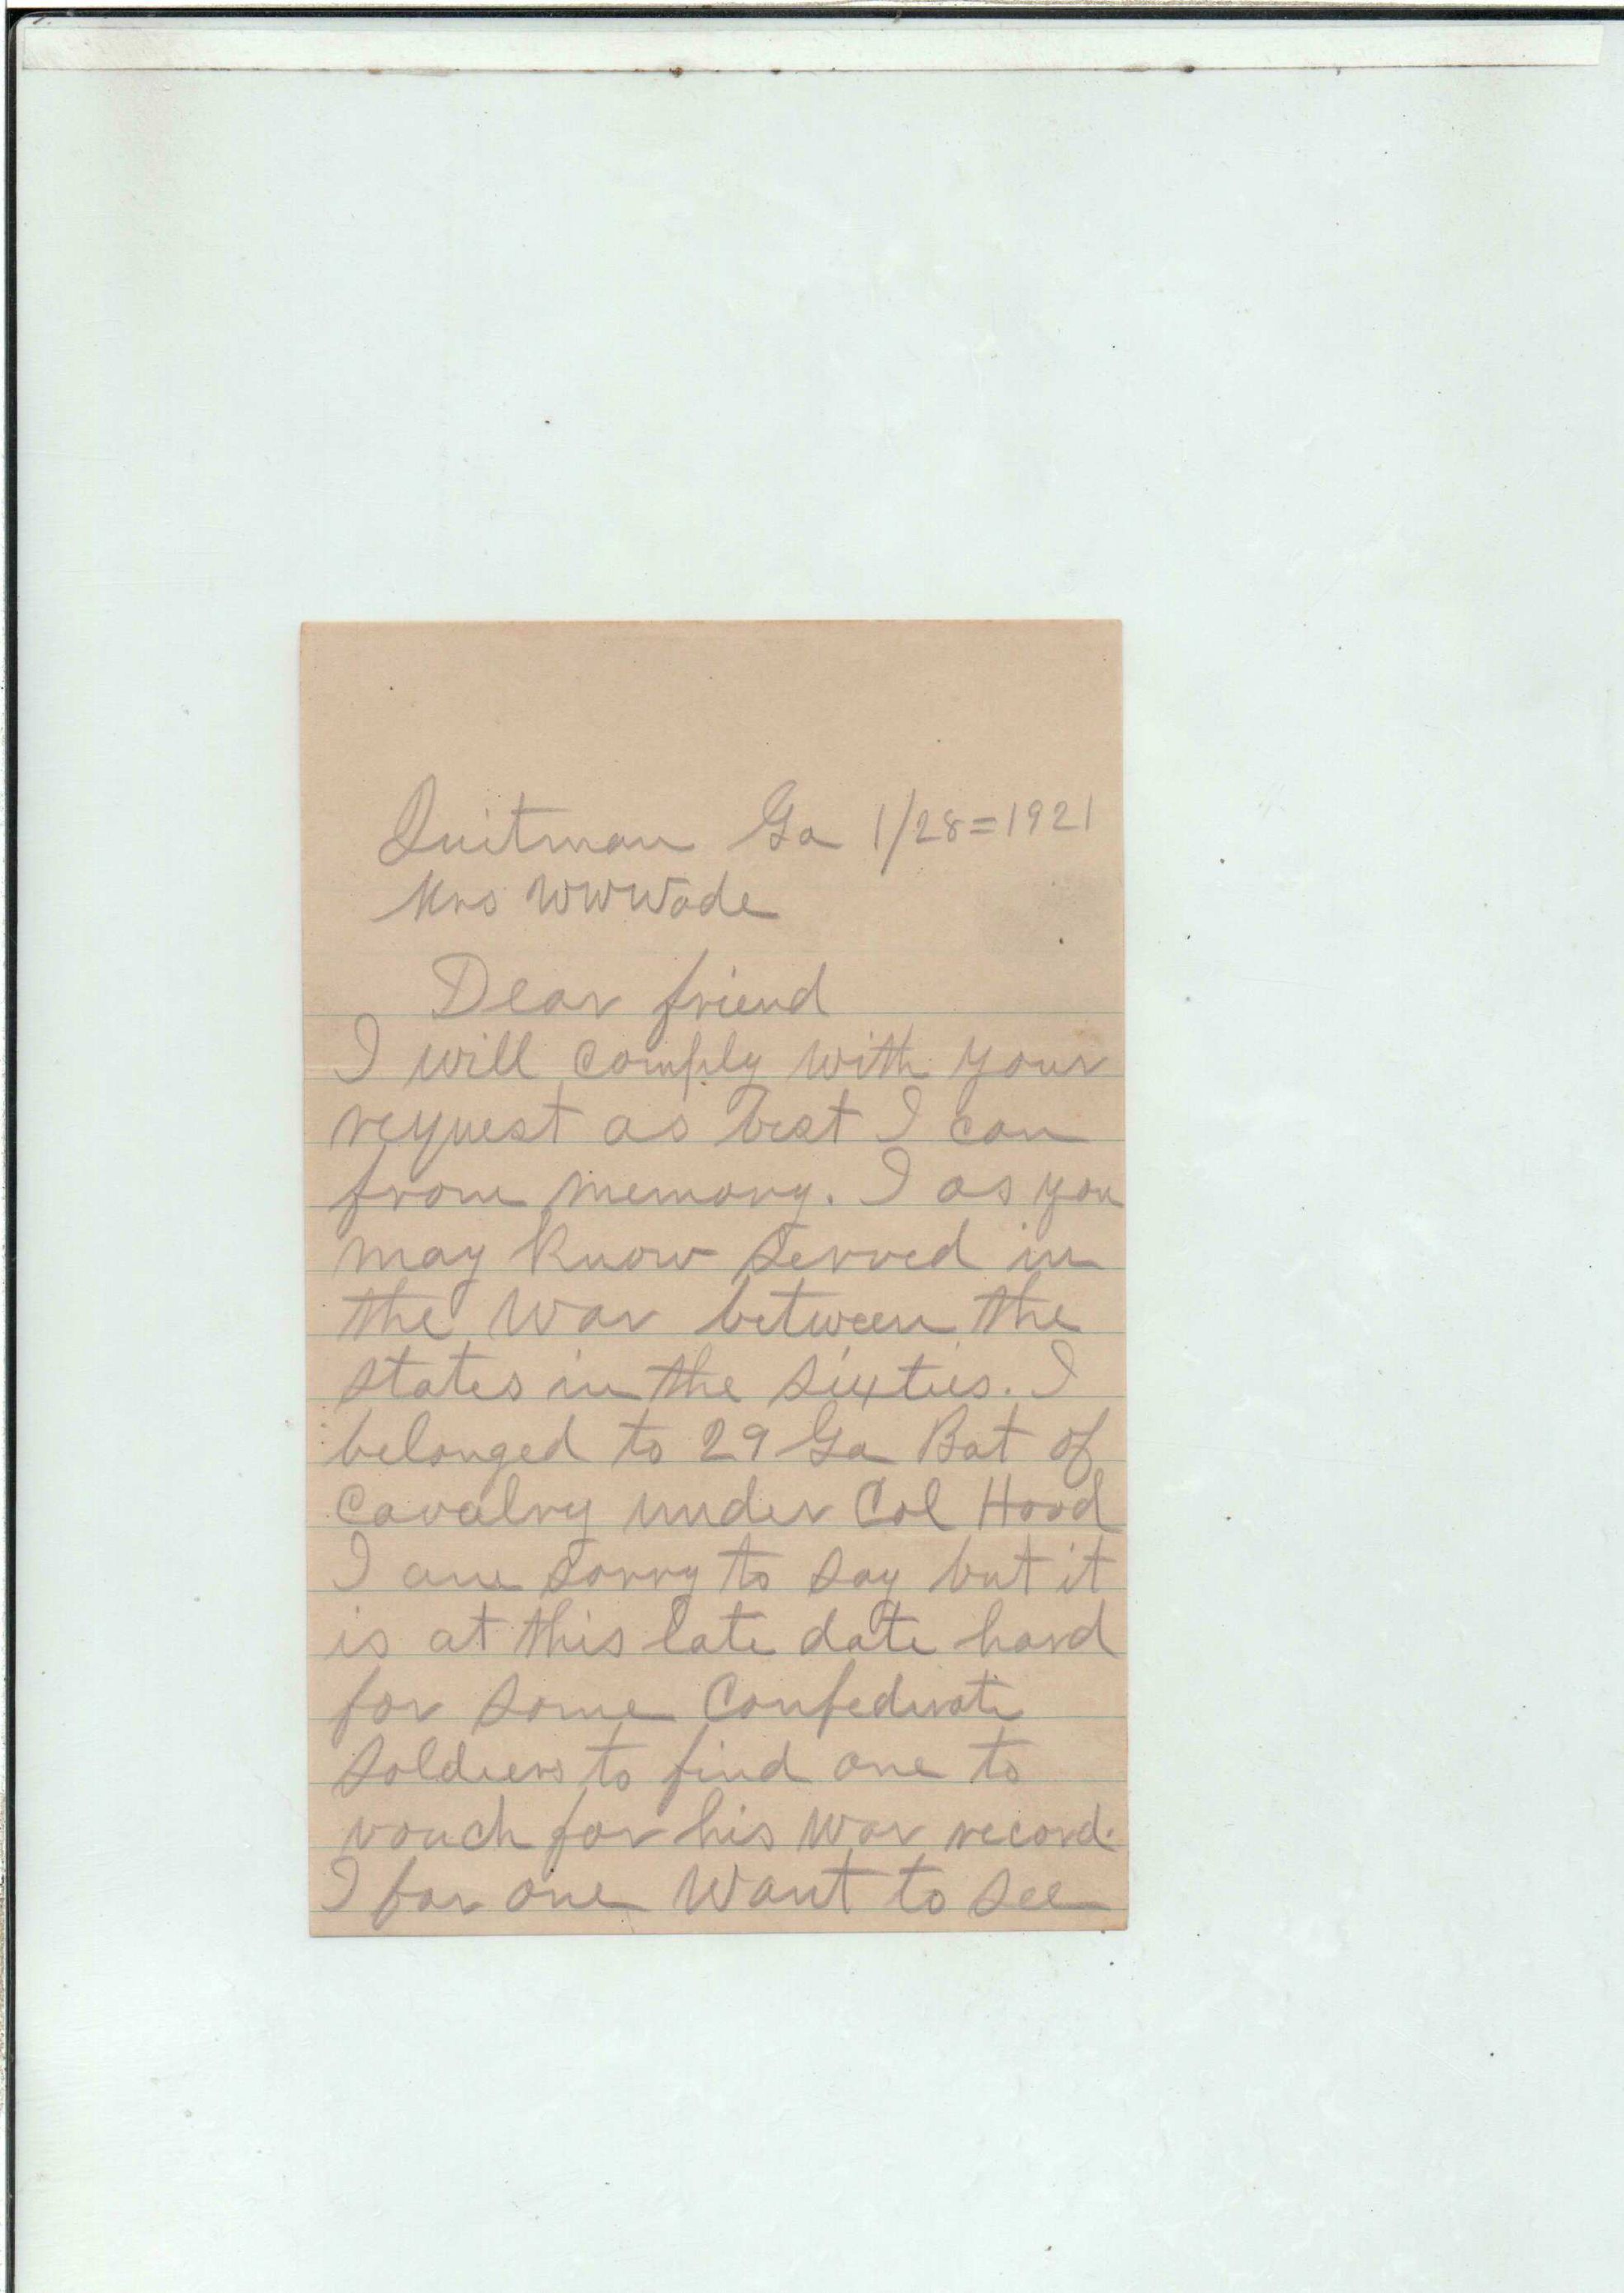 Quitman Ga 1/28=1921
Mrs WW Wade
Dear friend
I will comply with your
request as best I can
from memory. I as you
may know served in
the war between the
states in the sixties. I
belonged to 29 Ga Bat of
Cavalry under Col Hood
I am sorry to say but it
is at this late date hard
for some Confederate
soldiers to find one to
vouch for his war record.
I for one want to see